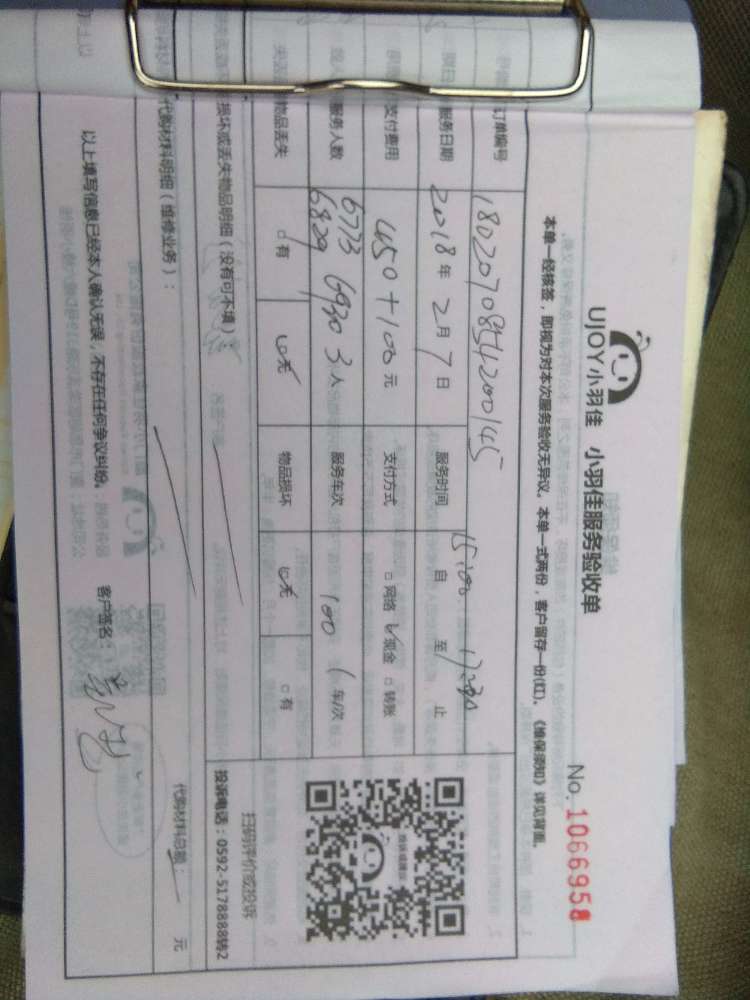 UJOY小羽佳 小羽佳服务验收单
No. 1066958
本单一经核签,即视为对本次服务验收无异议。本单一式两份,客户留存一份(红)。《维保须知》详见背面。
订单编号 1802070854200145
服务日期 2018年2月7日 服务时间 15:00 自 至 17:30 止
支付费用 450+100元 支付方式 □网络 √现金 □转账
服务人数 6773 6930 6829 3人 服务车次 100 1车/次
物品丢失 □有 √无 物品损坏 √无 □有
损坏或丢失物品明细(没有可不填):
扫码评价或投诉
投诉电话:0592-5178888转2
代购材料明细(维修业务):
代购材料总额: 元
以上填写信息已经本人确认无误,不存在任何争议纠纷。 客户签名: